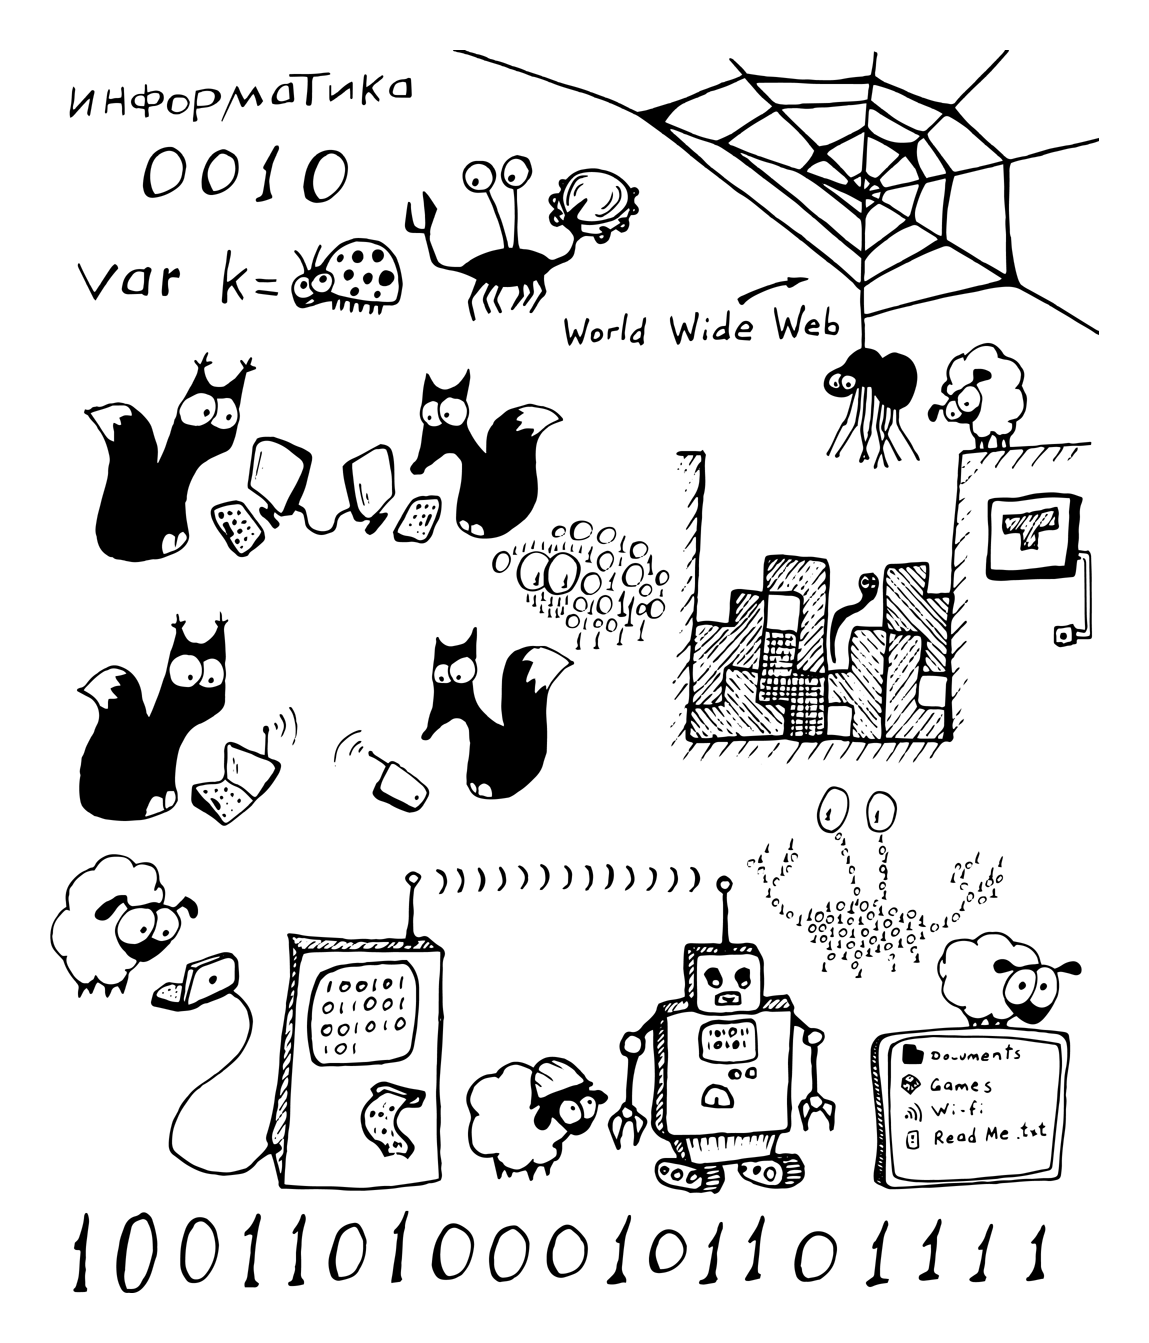 информатика
0010
var k=
World Wide Web
100101
011001
001010
101
101011
10101
Documents
Games
Wi-fi
Read Me.txt
1001101000101101111